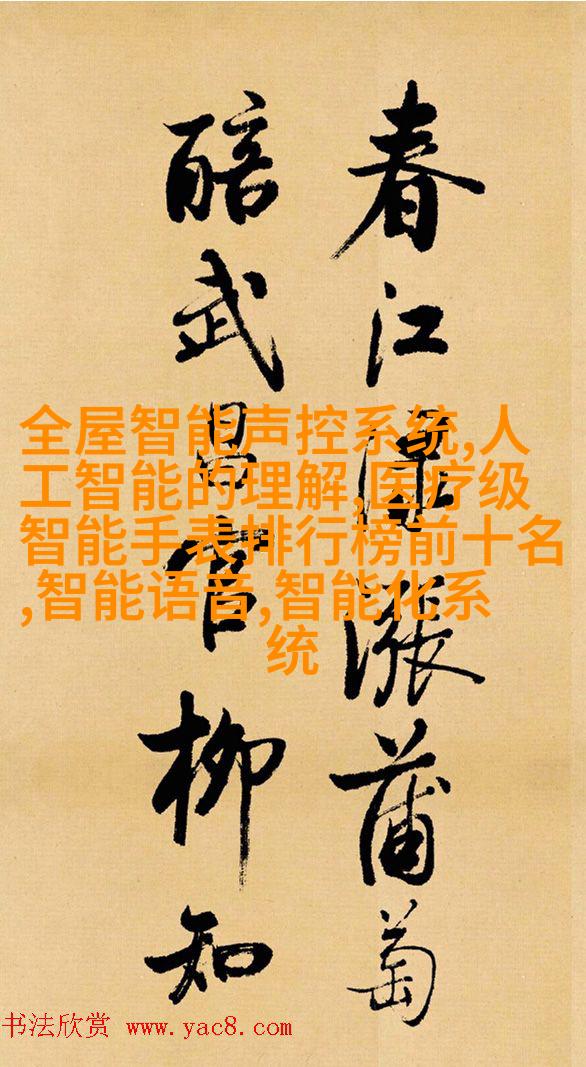 春江漲蒲萄
醅武昌官柳知
全屋智能声控系统,人
工智能的理解,医疗级
智能手表排行榜前十名
,智能语音,智能化系
统
书法欣赏 www.yac8.com